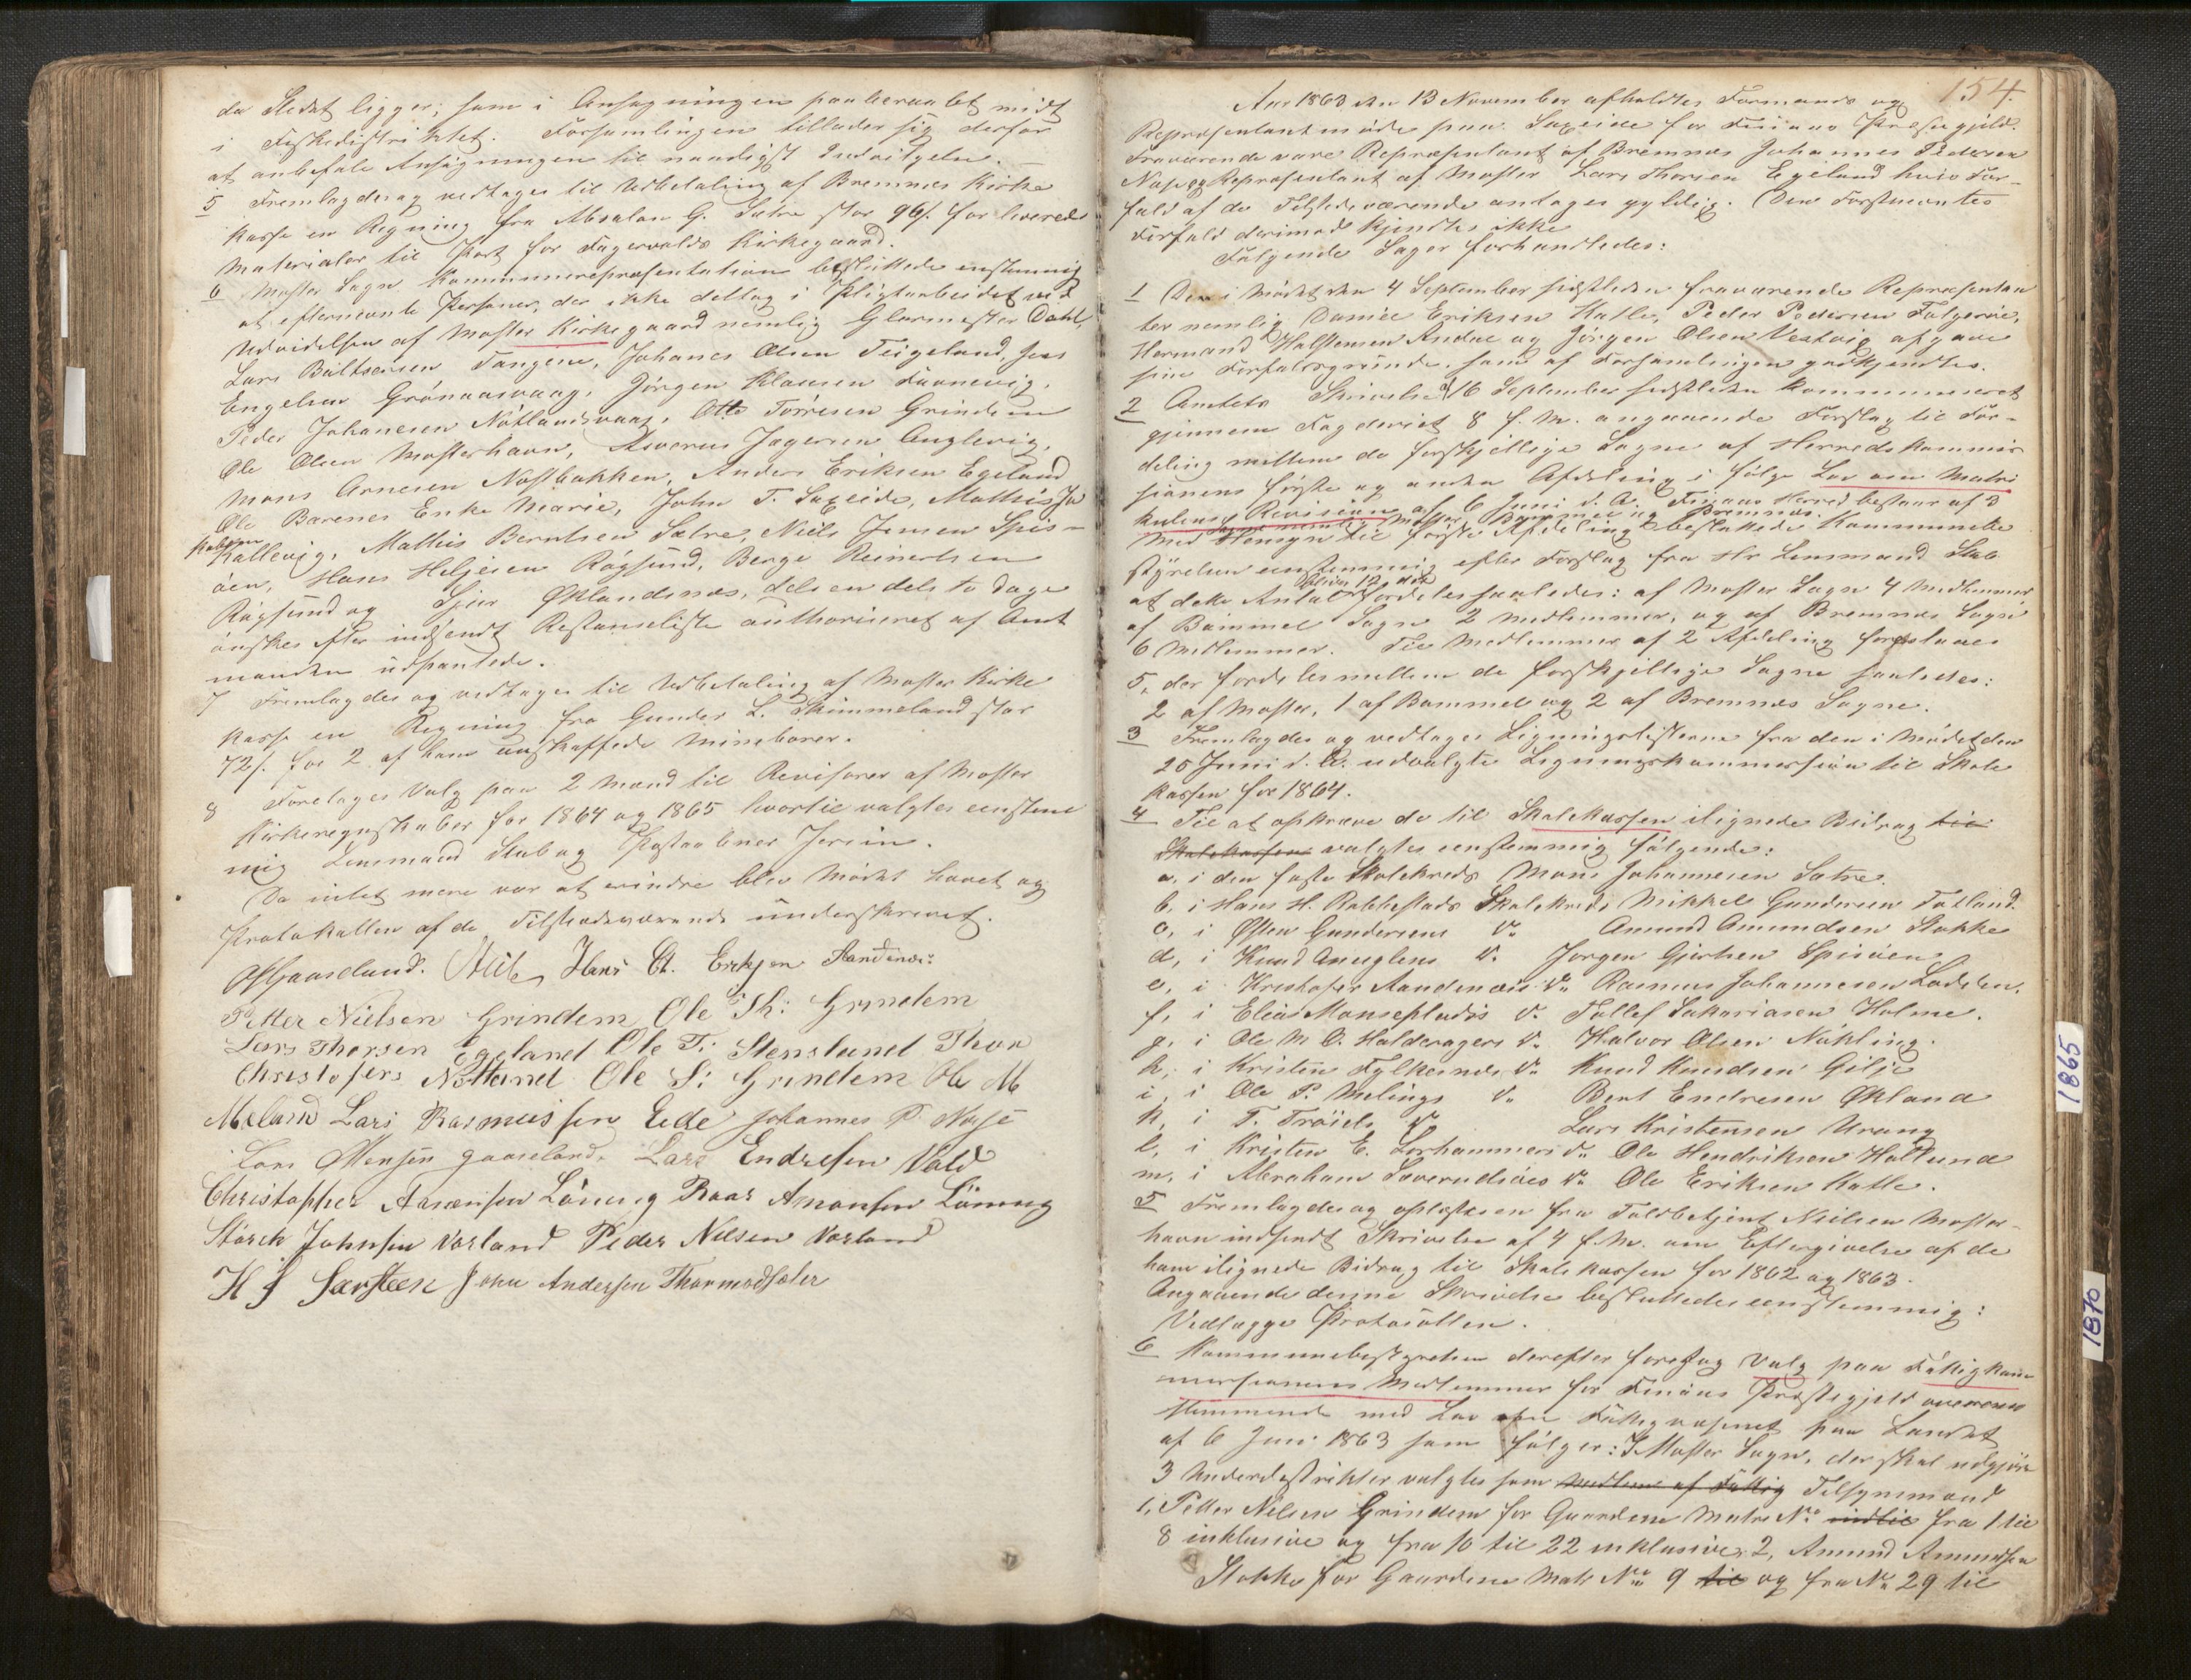 da Stedet ligger, som i Ansøgningen paaberaabt midt
i Fiskedistriktet. Forsamlingen tillader sig derfor
at anbefale Ansøgningen til naadigst Indvilgelse. —
5 Fremlagdes og vedtages til Udbetaling af Bremnes Kirke
kasse en Regning fra Absalon G. Sætre stor 96 s. for leverede
Materialer til Port for Fagervolds Kirkegaard.
6 Moster Sogns Kommunerepræsentation besluttede enstemmig
at efternevnte Personer, der ikke deltog i Pligtarbeidet ved
Udvidelsen af Moster Kirkegaard nemlig Glarmester Dahl,
Lars Baltsersen Tangene, Johanes Olsen Teigeland, Jens
Engelsen Grönaasvaag, Jörgen Klausen Favnevig,
Peder Johanesen Nötlandsvaag, Otto Törresen Grindem
Ole Olsen Mosterhavn, Asverus Jagersen Anglevig,
Mons Arnesen Nostbakken, Anders Eriksen Egeland
Ole Barenes Enke Marie, John T. Saxeide, Mathis Ja
kobsen
Kallevig, Mathis Berntsen Sætre, Niels Jensen Spis-
öen, Hans Heljesen Rögsund, Berge Reinertsen
Rögsund og Sjur Øklandsnæs, dels en dels to Dage
önskes efter indsendt Restanseliste authoriseret af Amt
manden udpantede.
7 Fremlagdes og vedtages til Udbetaling af Moster Kirke
kasse en Regning fra Gunder L. Skimmeland stor
72 s. for 2 af ham anskaffede Mineborer.
8 Foretages Valg paa 2 Mand til Revisorer af Moster
Kirkeregnskaber for 1864 og 1865 hvortil valgtes enstem
mig Lensmand Stub og Postaabner Jersin.
Da intet mere var at erindre blev Mödet hævet og
Protokollen af de Tilstedeværende underskrevet.
O Gaaseland. Stub Hans Ch. Erichsen Aandenæs
Petter Nielsen Grindem Ole Th: Grindem
Lars Thorsen Egeland Ole T: Stensland Thor
Christofers Nötland Ole S: Grindem Ole M
Meland Lars Rasmussen Eide Johannes P. Nese
Lars Monsen Gaaseland. Lars Endresen Vold
Christopher Asmonsen Löning Roar Amonsen Löning
Störck Johnsen Vorland Peder Nilsen Vorland
H J Særsteen John Andersen Thormodsæter
154.
Aar 1863 den 13 November afholdtes Formands og
Repræsentantmöde paa Saxeide for Finaas Præstegjeld.
Fraværende vare Repræsentant af Bremnes Johannes Pedersen
Nese og Repræsentant af Moster Lars Thorsen Egeland hvis For-
fald af de Tilstedeværende antages gyldig. Den Förstnevntes
Forfald derimod kjendtes ikke
Fölgende Sager forhandledes:
1 De i Mödet den 4 September sidstleden fraværende Repræsentan
ter nemlig Daniel Eriksen Katle, Peder Pedersen Folgeröe,
Hermand Halstensen Andal og Jörgen Olsen Vestvig afgave
sine Forfaldsgrunde, som af Forsamlingen godkjendtes.
2 Amtets Skrivelse d. 16 September sidstleden kommuniceret
gjennem Fogderiet 8 f. M. angaaende Forslag til For-
deling mellem de forskjellige Sogne af Herredskommis
sionens förste og anden Afdeling i fölge Lov om Matri
kulens Revision af 6 Juni d. A. Finaas Herred bestaar af 3
Sogne nemlig: Moster Bömmel og Bremnes.
Med Hensyn til förste Afdeling besluttede Kommunebe
styrelsen enstemmig efter Forslag fra Hr Lensmand Stub
bliver 12 der
at dette Antal fordeles saaledes: af Moster Sogn 4 Medlemmer
af Bömmel Sogn 2 Medlemmer, og af Bremnes Sogn
6 Medlemmer. Til Medlemmer af 2 Afdeling foreslaaes
5, der fordeles mellem de forskjellige Sogne saaledes:
2 af Moster, 1 af Bömmel og 2 af Bremnes Sogne.
3 Fremlagdes og vedtages Ligningslisterne fra den i Mödet den
25 Juni d. A. udvalgte Ligningskommission til Skole
kassen for 1864.
4 Til at opkræve de til Skolekassen ilignede Bidrag til
Skolekassen valgtes eenstemmig fölgende:
a, i den faste Skolekreds Mons Johannesen Sætre.
b, i Hans H. Rabbestads Skolekreds Mikkel Gundersen Totland.
c, i Østen Gundersens do Amund Amundsen Stokke
d, i Knud Aneglens do Jorgen Gjertsen Spisöen
e, i Kristofer Aandenæs's do Rasmus Johannesen Lodden.
f, i Elias Monsepladsis do Tollef Sakariasen Holme.
g, i Ole M O. Halderagers do Halvor Olsen Nökling.
h, i Kristen Fylkesnes do Knud Knudsen Gilje
i, i Ole P. Melings do Bent Endresen Økland
k, i T. Tröiels do Lars Kristensen Urang
l, i Kristen E. Lorhammers do Ole Hendriksen Hallund
m, i Abraham Sæverudsöes do Ole Eriksen Katle.
5 Fremlagdes og oplæstes en fra Toldbetjent Nielsen Moster-
havn indsendt Skrivelse af 4 f. M. om Eftergivelse af de
ham ilignede Bidrag til Skolekassen for 1862 og 1863.
Angaaende denne Skrivelse besluttedes eenstemmig:
Vedlægges Protocollen.
6 Kommunebestyrelsen derefter foretog Valg paa Fattigkom
missionens Medlemmer for Finaas Præstegjeld overens
stemmende med Lov om Fattigvæsenet paa Landet
af 6 Juni 1863 som fölger: I Moster Sogn, der skal udgjöre
3 Underdistrikter valgtes som Medlem af Fattig Tilsynsmænd
1, Petter Nilsen Grindem for Gaardene Matr No indtil fra 1 til
8 inklusive og fra 10 til 22 inklusive, 2, Amund Amundsen
Stokke for Gaardene Matr No 9 til og fra No 29 til
1865
1870